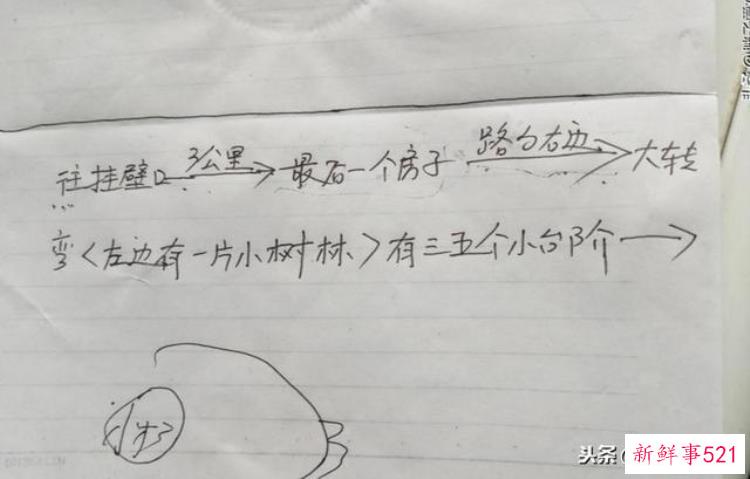 往挂壁口 3公里→ 最后一个房子 路的右边→ 大转
弯<左边有一片小树林>有三五个小台阶→
小村
头条
新鲜事521